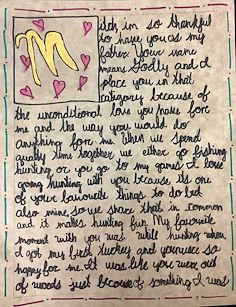 Mitch im so thankful
to have you as my
father. Your name
means Godly and I
place you in that
category because of
the unconditional love you have for
me and the way you would do
anything for me. When we spend
quality time together, we either go fishing
hunting or you go to my games. I love
going hunting with you because its one
of your favourite things to do and
also mine, so we share that in common
and it makes hunting fun. My favourite
moment with you was will hunting when
I got my first turkey and you were so
happy for me. It was like you were out
of words just because of something I was